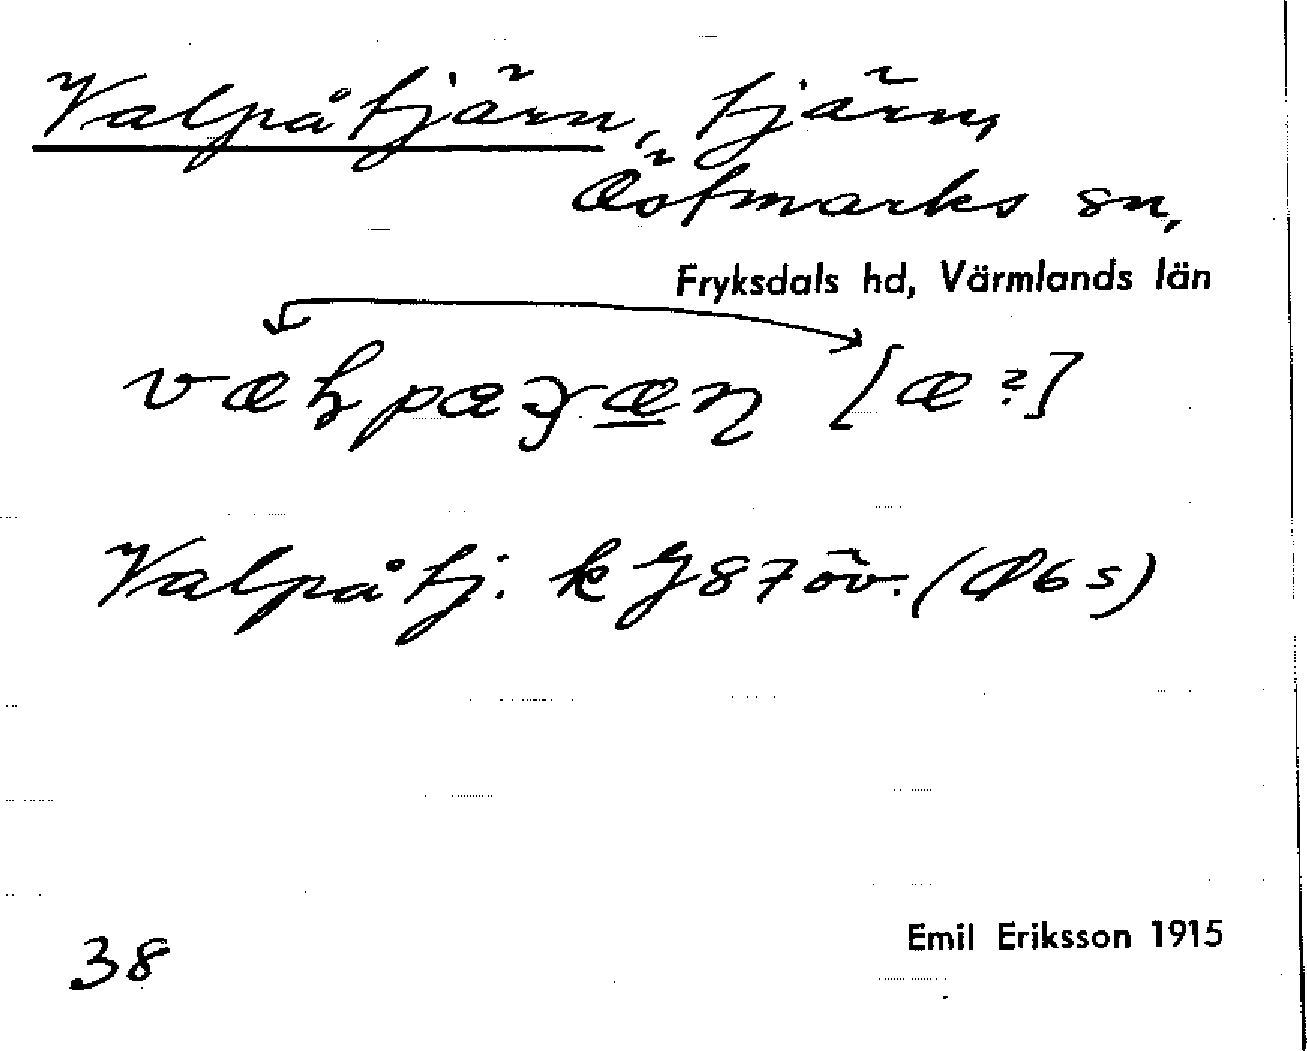 Valpåtjärn, tjärn,
Östmarks sn,
Fryksdals hd, Värmlands län
[æ?]
Valpåtj. k J87 öv.
38
Emil Eriksson 1915